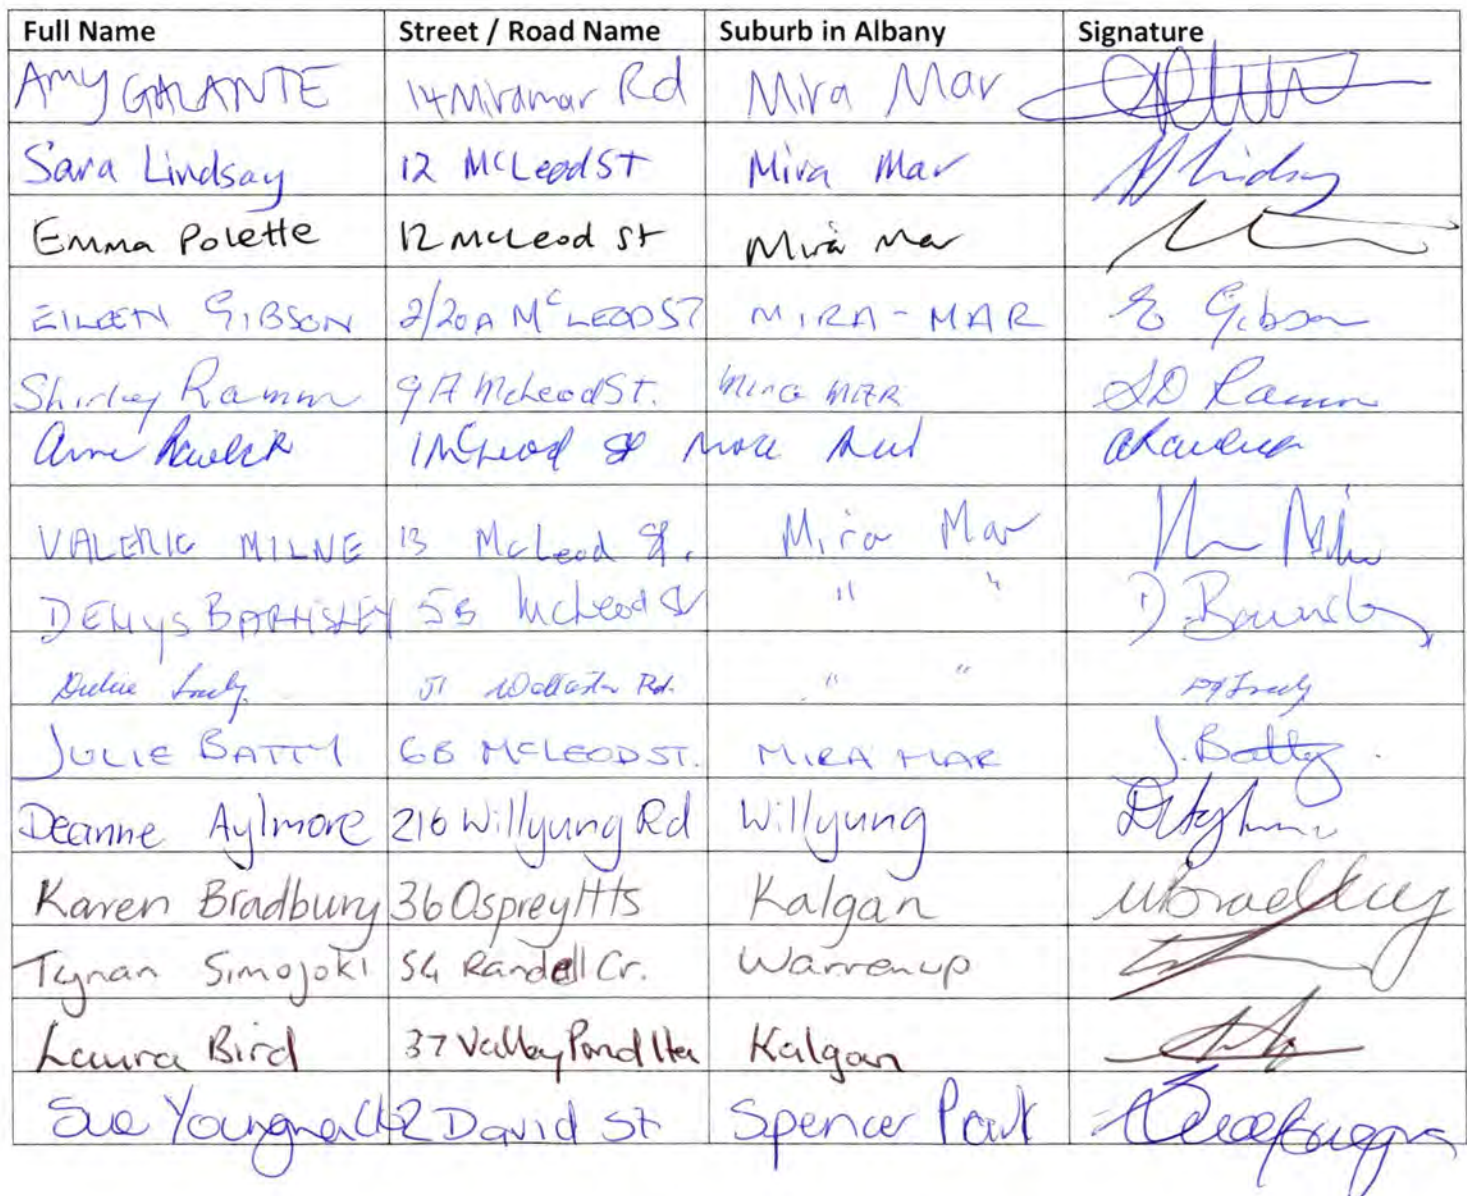 Full Name Street / Road Name Suburb in Albany Signature
Amy GALANTE 14 Miramar Rd Mira Mar
Sara Lindsay 12 McLeod St Mira Mar Lindsay
Emma Polette 12 McLeod St Mira Mar
EILEEN GIBSON 2/20A McLEOD ST MIRA-MAR E Gibson
Shirley Ramm 9A McLeod St. Mira MAR SD Ramm
Anne 1 McLeod St
VALERIE MILNE 13 McLeod St. Mira Mar
DENYS BARNSLEY 5B McLeod St " " D. Barnsley
51 Rd. " "
JULIE BATTY 6B McLEOD ST. MIRA MAR J. Batty.
Deanne Aylmore 216 Willyung Rd Willyung
Karen Bradbury 36 Osprey Hts Kalgan Bradbury
Tynan Simojoki 54 Randell Cr. Warrenup
Laura Bird 37 Valley Pond Kalgan
Sue 2 David St Spencer Park